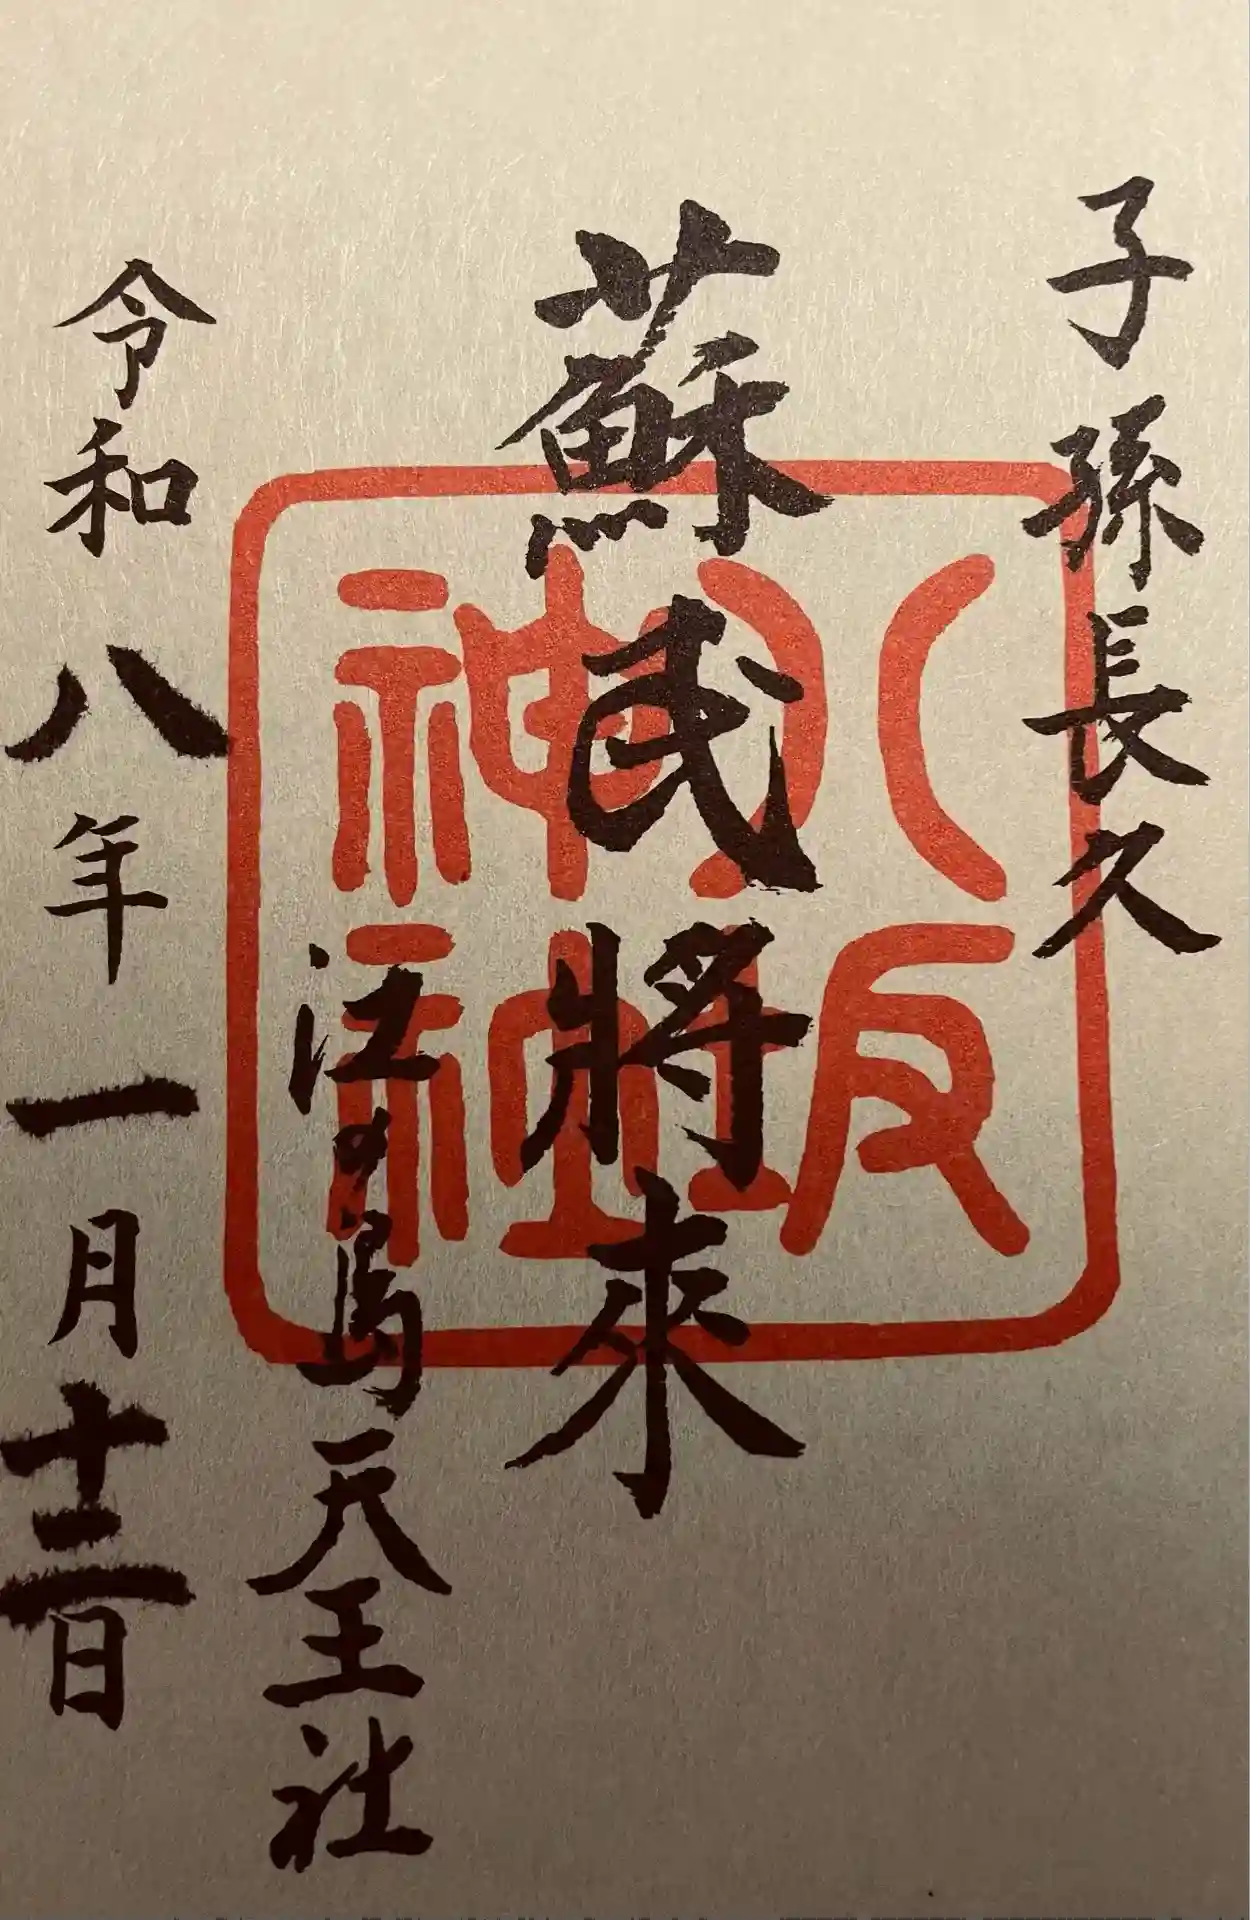 子孫長久
蘇民將來
江の島天王社
令和八年一月十二日
八坂
神社